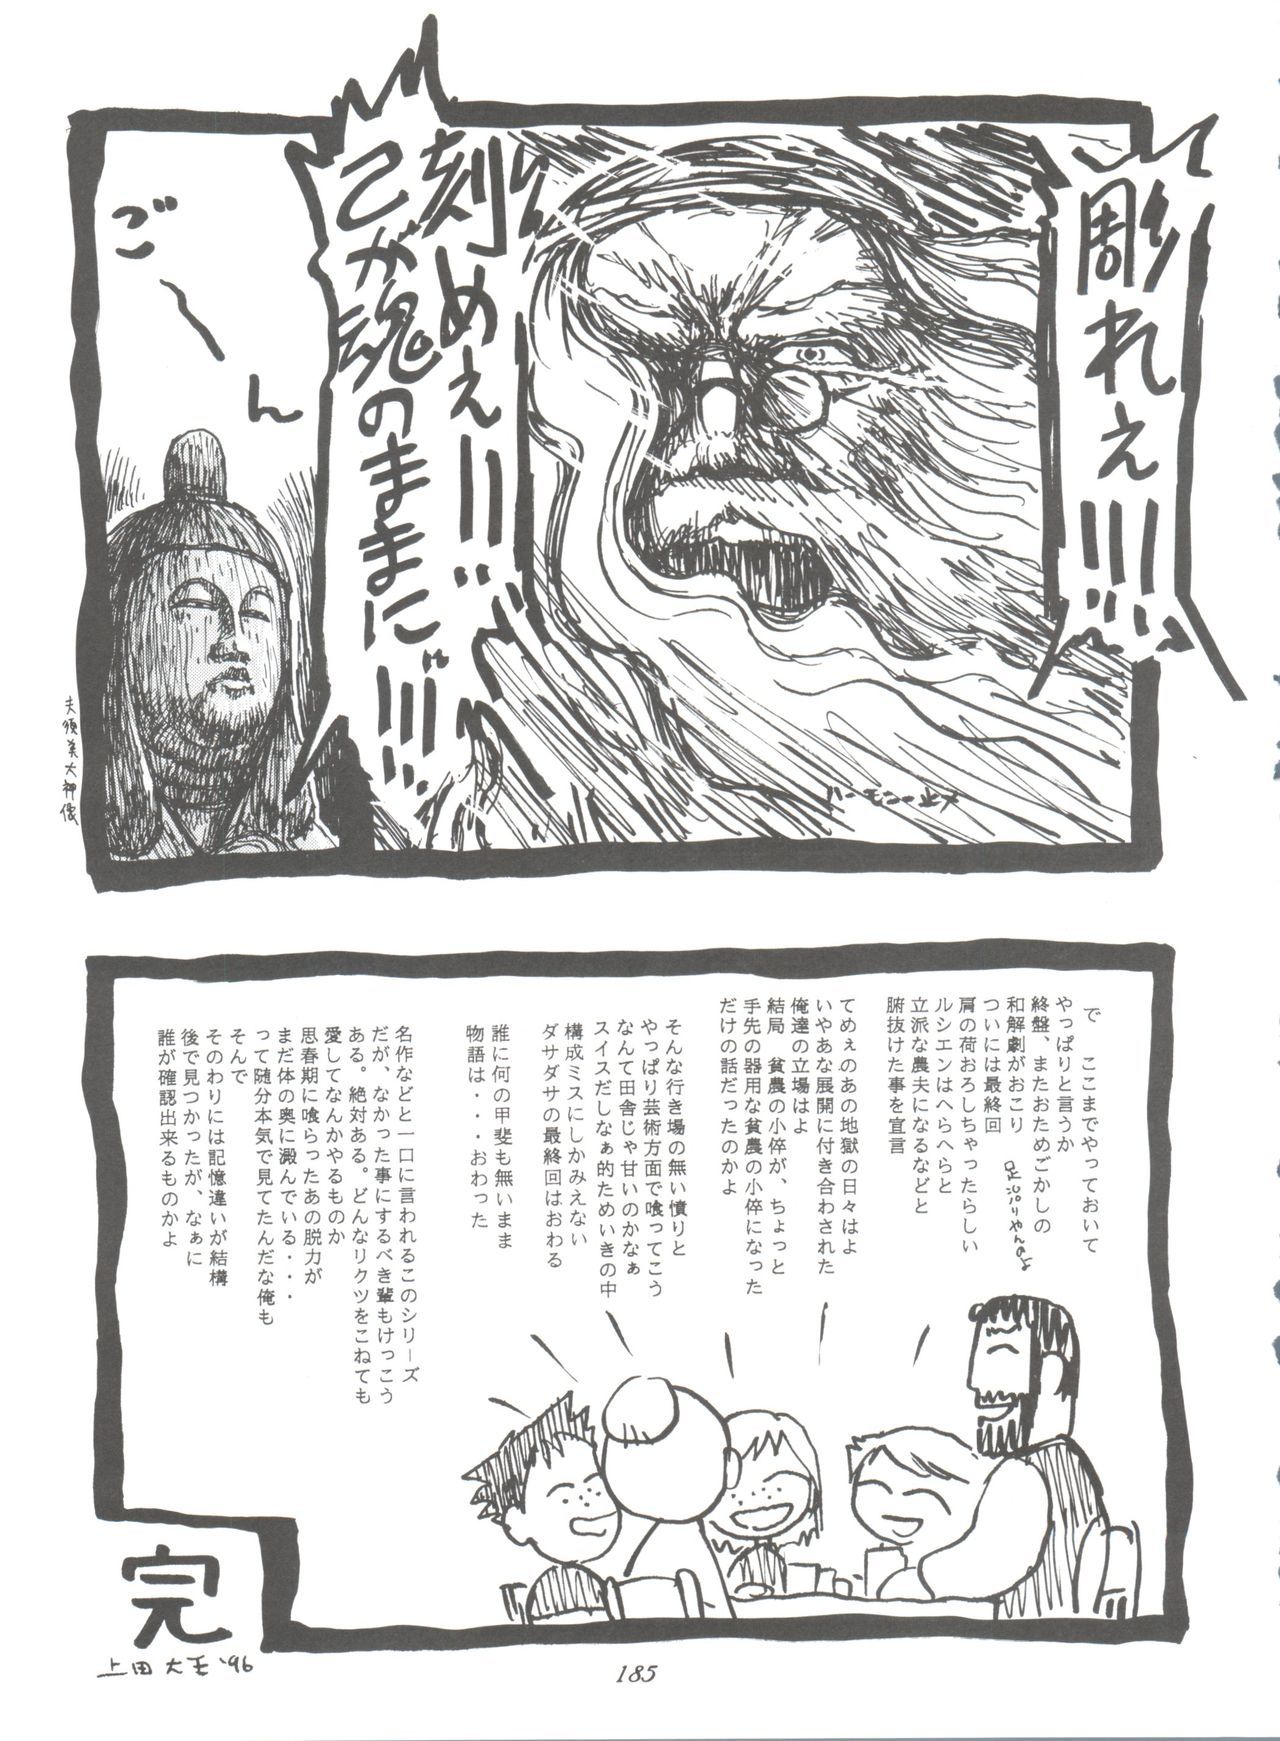 彫れぇ!!!!
刻めぇ!!!
己が魂のままに!!!!
ご〜ん
夫須美大神像
で　ここまでやっておいて
やっぱりと言うか
終盤、またおためごかしの
和解劇がおこり
ついには最終回
肩の荷おろしちゃったらしい
ルシエンはへらへらと
立派な農夫になるなどと
腑抜けた事を宣言
てめぇのあの地獄の日々はよ
いやあな展開に付き合わされた
俺達の立場はよ
結局　貧農の小倅が、ちょっと
手先の器用な貧農の小倅になった
だけの話だったのかよ
そんな行き場の無い憤りと
やっぱり芸術方面で喰ってこう
なんて田舎じゃ甘いのかなぁ
スイスだしなぁ的ためいきの中
構成ミスにしかみえない
ダサダサの最終回はおわる
誰に何の甲斐も無いまま
物語は・・・おわった
名作などと一口に言われるこのシリーズ
だが、なかった事にするべき輩もけっこう
ある。絶対ある。どんなリクツをこねても
愛してなんかやるものか
思春期に喰らったあの脱力が
まだ体の奥に澱んでいる・・・
って随分本気で見てたんだな俺も
そんで
そのわりには記憶違いが結構
後で見つかったが、なぁに
誰が確認出来るものかよ
完
上田大王 '96
185